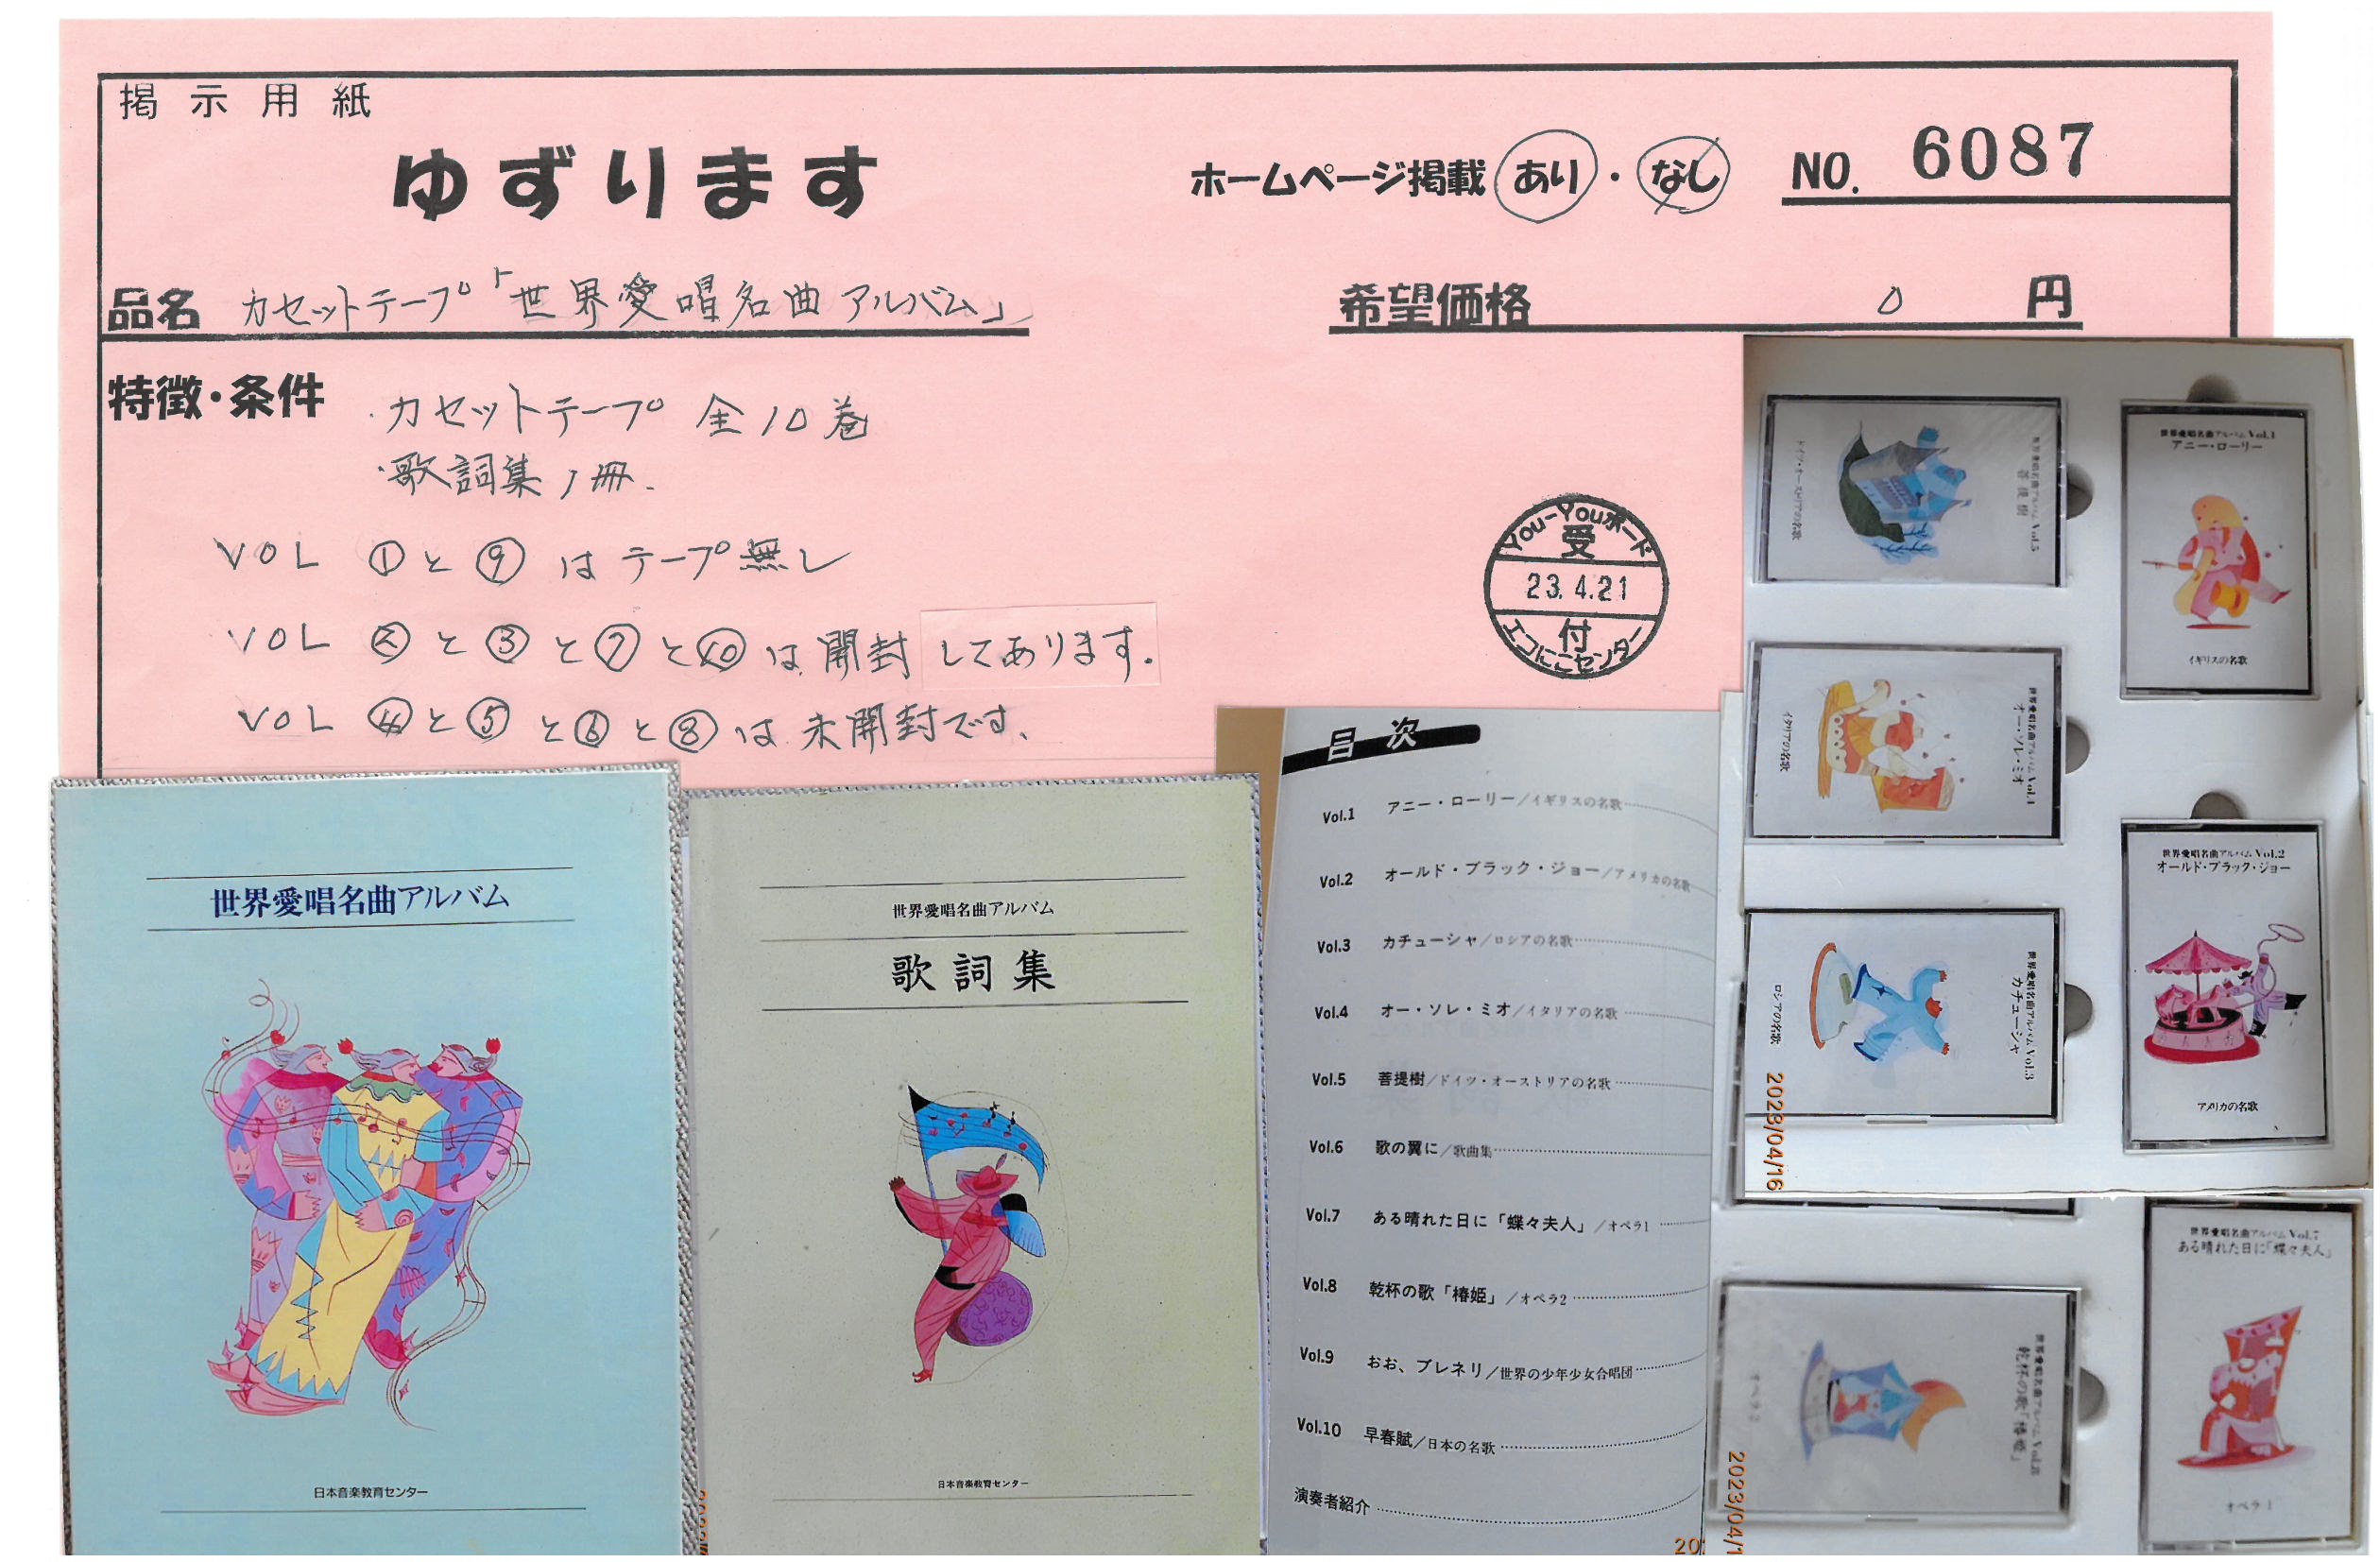 掲示用紙
ゆずります
ホームページ掲載 あり・なし
NO. 6087
品名 カセットテープ「世界愛唱名曲アルバム」
希望価格 0 円
特徴・条件
・カセットテープ 全10巻
・歌詞集1冊.
VOL ①と⑨はテープ無し
VOL ②と③と⑦と⑩は開封してあります.
VOL ④と⑤と⑥と⑧は未開封です、
You-Youボード
受
23.4.21
付
エコにこセンター
世界愛唱名曲アルバム
日本音楽教育センター
世界愛唱名曲アルバム
歌詞集
日本音楽教育センター
目次
Vol.1 アニー・ローリー/イギリスの名歌
Vol.2 オールド・ブラック・ジョー/アメリカの名歌
Vol.3 カチューシャ/ロシアの名歌
Vol.4 オー・ソレ・ミオ/イタリアの名歌
Vol.5 菩提樹/ドイツ・オーストリアの名歌
Vol.6 歌の翼に/歌曲集
Vol.7 ある晴れた日に「蝶々夫人」/オペラ1
Vol.8 乾杯の歌「椿姫」/オペラ2
Vol.9 おお、ブレネリ/世界の少年少女合唱団
Vol.10 早春賦/日本の名歌
演奏者紹介
20
世界愛唱名曲アルバム Vol.5
菩提樹
ドイツ・オーストリアの名歌
世界愛唱名曲アルバム Vol.1
アニー・ローリー
イギリスの名歌
世界愛唱名曲アルバム Vol.4
オー・ソレ・ミオ
イタリアの名歌
世界愛唱名曲アルバム Vol.2
オールド・ブラック・ジョー
アメリカの名歌
世界愛唱名曲アルバム Vol.3
カチューシャ
ロシアの名歌
2023/04/16
世界愛唱名曲アルバム Vol.7
ある晴れた日に「蝶々夫人」
オペラ1
世界愛唱名曲アルバム Vol.8
乾杯の歌「椿姫」
オペラ2
2023/04/1